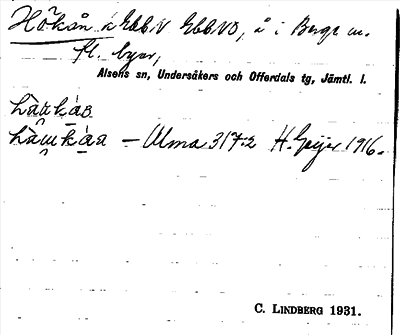 Hökån å Ebl. N Ebl. NO, å i Berge m.
fl. byar,
Alsens sn, Undersåkers och Offerdals tg, Jämtl. l.
— Ulma 317:2 H. Geijer 1916.
C. LINDBERG 1931.